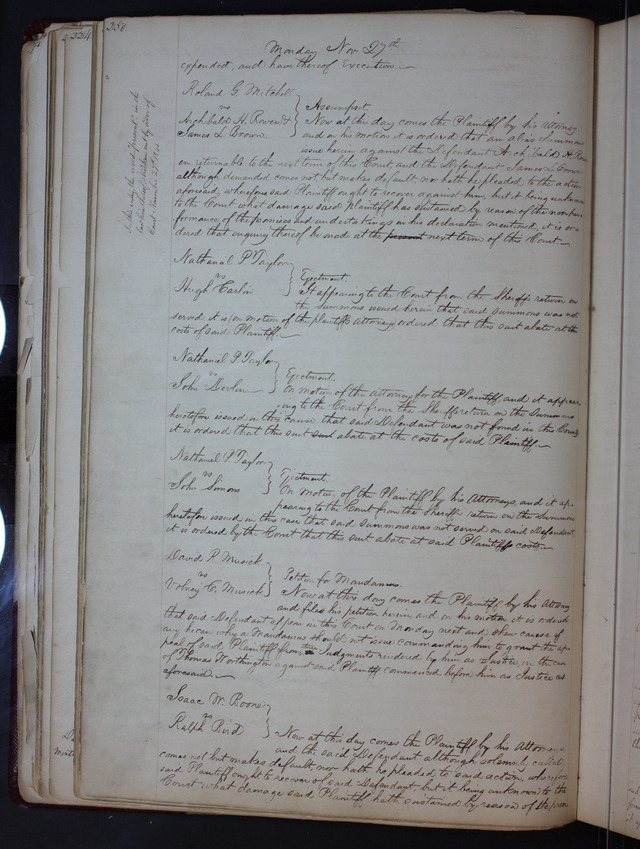 334
258
Monday Nov 27th
expended, and have thereof Execution.
Roland G Mitchell
vs
Archibald H. Rowend
James L. Brown
Assumpsit
Now at this day comes the Plaintiff by his Attorney
and on his motion it is ordered that an alias Summons
issue herein against the Defendant Archibald H. Row
en returnable to the next term of this Court, and the Defendant James L. Brown
although demanded comes not but makes default, nor hath he pleaded to the action
aforesaid, wherefore said Plaintiff ought to recover against him, but it being unknown
to the Court what damage said Plaintiff has sustained by reason of the nonper
formance of the promises and undertakings in his declaration mentioned, it is or
dered that enquiry thereof be made at the present next term of this Court
Nathanal P Taylor
vs
Hugh Carlin
Ejectment.
It appearing to the Court from the Sheriffs return on
the Summons issued herein that said Summons was not
served it is on motion of the plaintiffs attorney ordered that this suit abate at the
costs of said Plaintiff
Nathaniel P Taylor
vs
John Devlin
Ejectment.
On motion of the Attorney for the Plaintiff and it appear
ing to the Court from the Sheriffs return on the Summons
heretofore issued in this cause that said Defendant was not found in this County
it is ordered that this suit suit abate at the costs of said Plaintiff
Nathaniel P Taylor
vs
John Simons
Ejectment.
On Motion of the Plaintiff by his Attorneys, and it ap-
pearing to the Court from the Sheriffs return on the Summons
heretofore issued in this case that said Summons was not served on said Defendant
it is ordered by the Court that this suit abate at said Plaintiffs costs
David R. Musick
vs
Volney C. Musick
Petition for Mandamus.
Now at this day comes the Plaintiff by his Attorney
and files his petition herein and on his motion it is ordered
that said Defendant appear in this Court on Monday next and shew cause if
any he can why a Mandamus should not issue commanding him to grant the ap
peal of said Plaintiff from the Judgments rendered by him as Justice in the case
of Thomas Worthington against said Plaintiff commenced before him as Justice as
aforesaid.
Isaac W. Boone
vs
Ralph Bird
Now at this day comes the Plaintiff by his Attorneys
and the said Defendant although solemnly called,
comes not but makes default nor hath he pleaded to said action, wherefore
said Plaintiff ought to recover of said Defendant, but it being unknown to the
Court what damage said Plaintiff hath sustained by reason of the prem